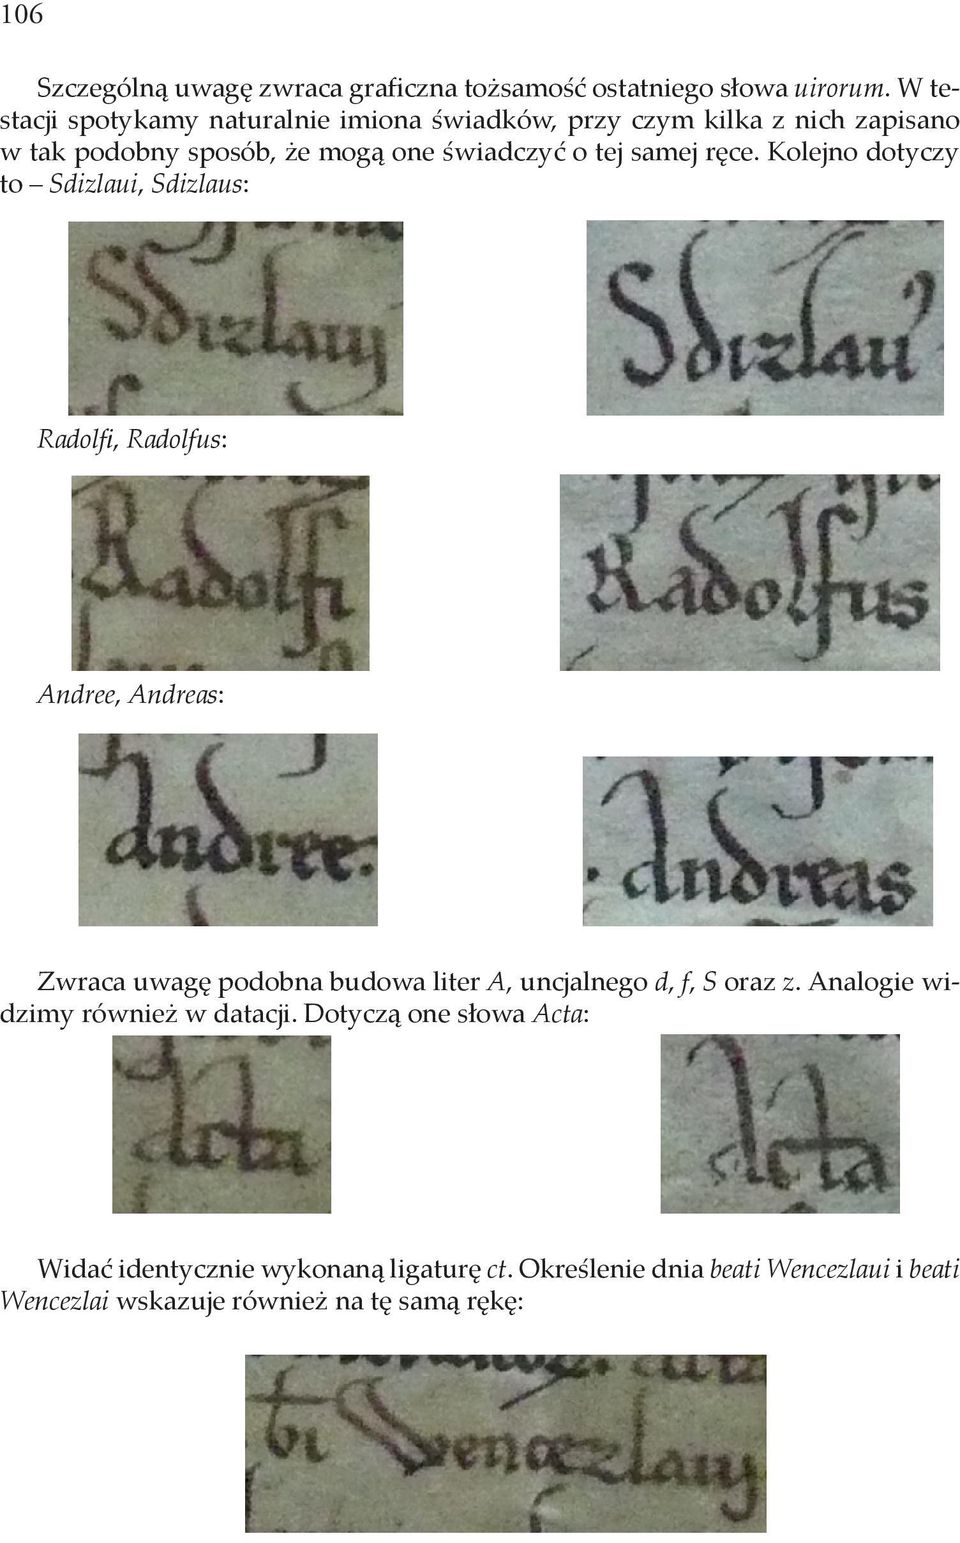 106
Szczególną uwagę zwraca graficzna tożsamość ostatniego słowa uirorum. W te-
stacji spotykamy naturalnie imiona świadków, przy czym kilka z nich zapisano
w tak podobny sposób, że mogą one świadczyć o tej samej ręce. Kolejno dotyczy
to – Sdizlaui, Sdizlaus:
Sdizlauj Sdizlau'
Radolfi, Radolfus:
Radolfi Radolfus
Andree, Andreas:
Andree. · Andreas
Zwraca uwagę podobna budowa liter A, uncjalnego d, f, S oraz z. Analogie wi-
dzimy również w datacji. Dotyczą one słowa Acta:
Acta Acta
Widać identycznie wykonaną ligaturę ct. Określenie dnia beati Wencezlaui i beati
Wencezlai wskazuje również na tę samą rękę:
bi Wencezlauj